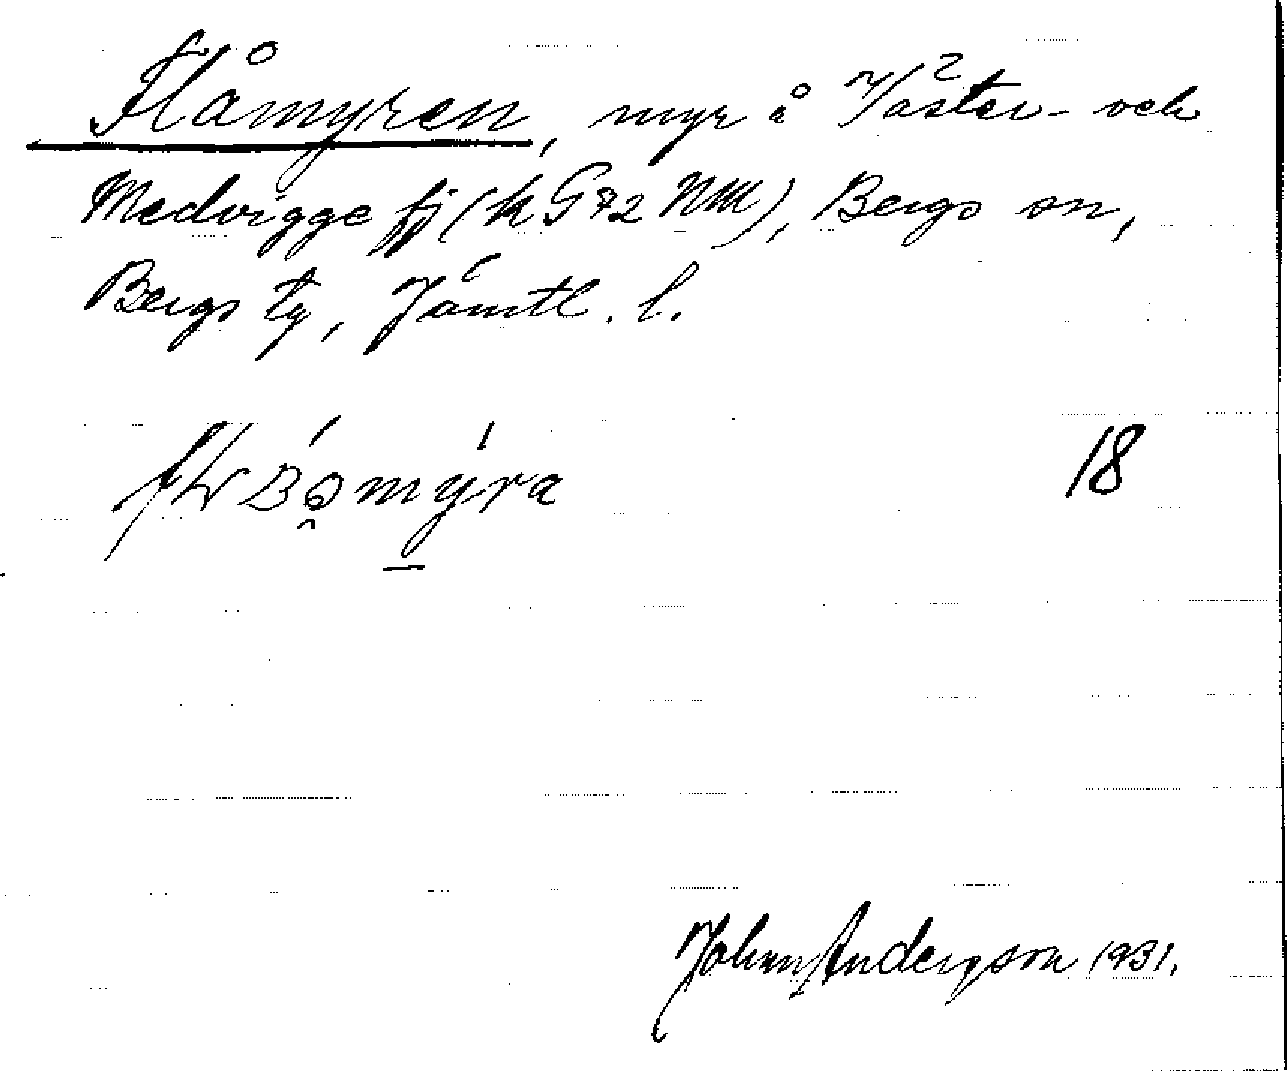 Flåmyren, myr å Väster- och
Medvigge fj (k G 72 NM), Bergs sn,
Bergs tg, Jämtl. l.
18
Johan Andersson 1931.